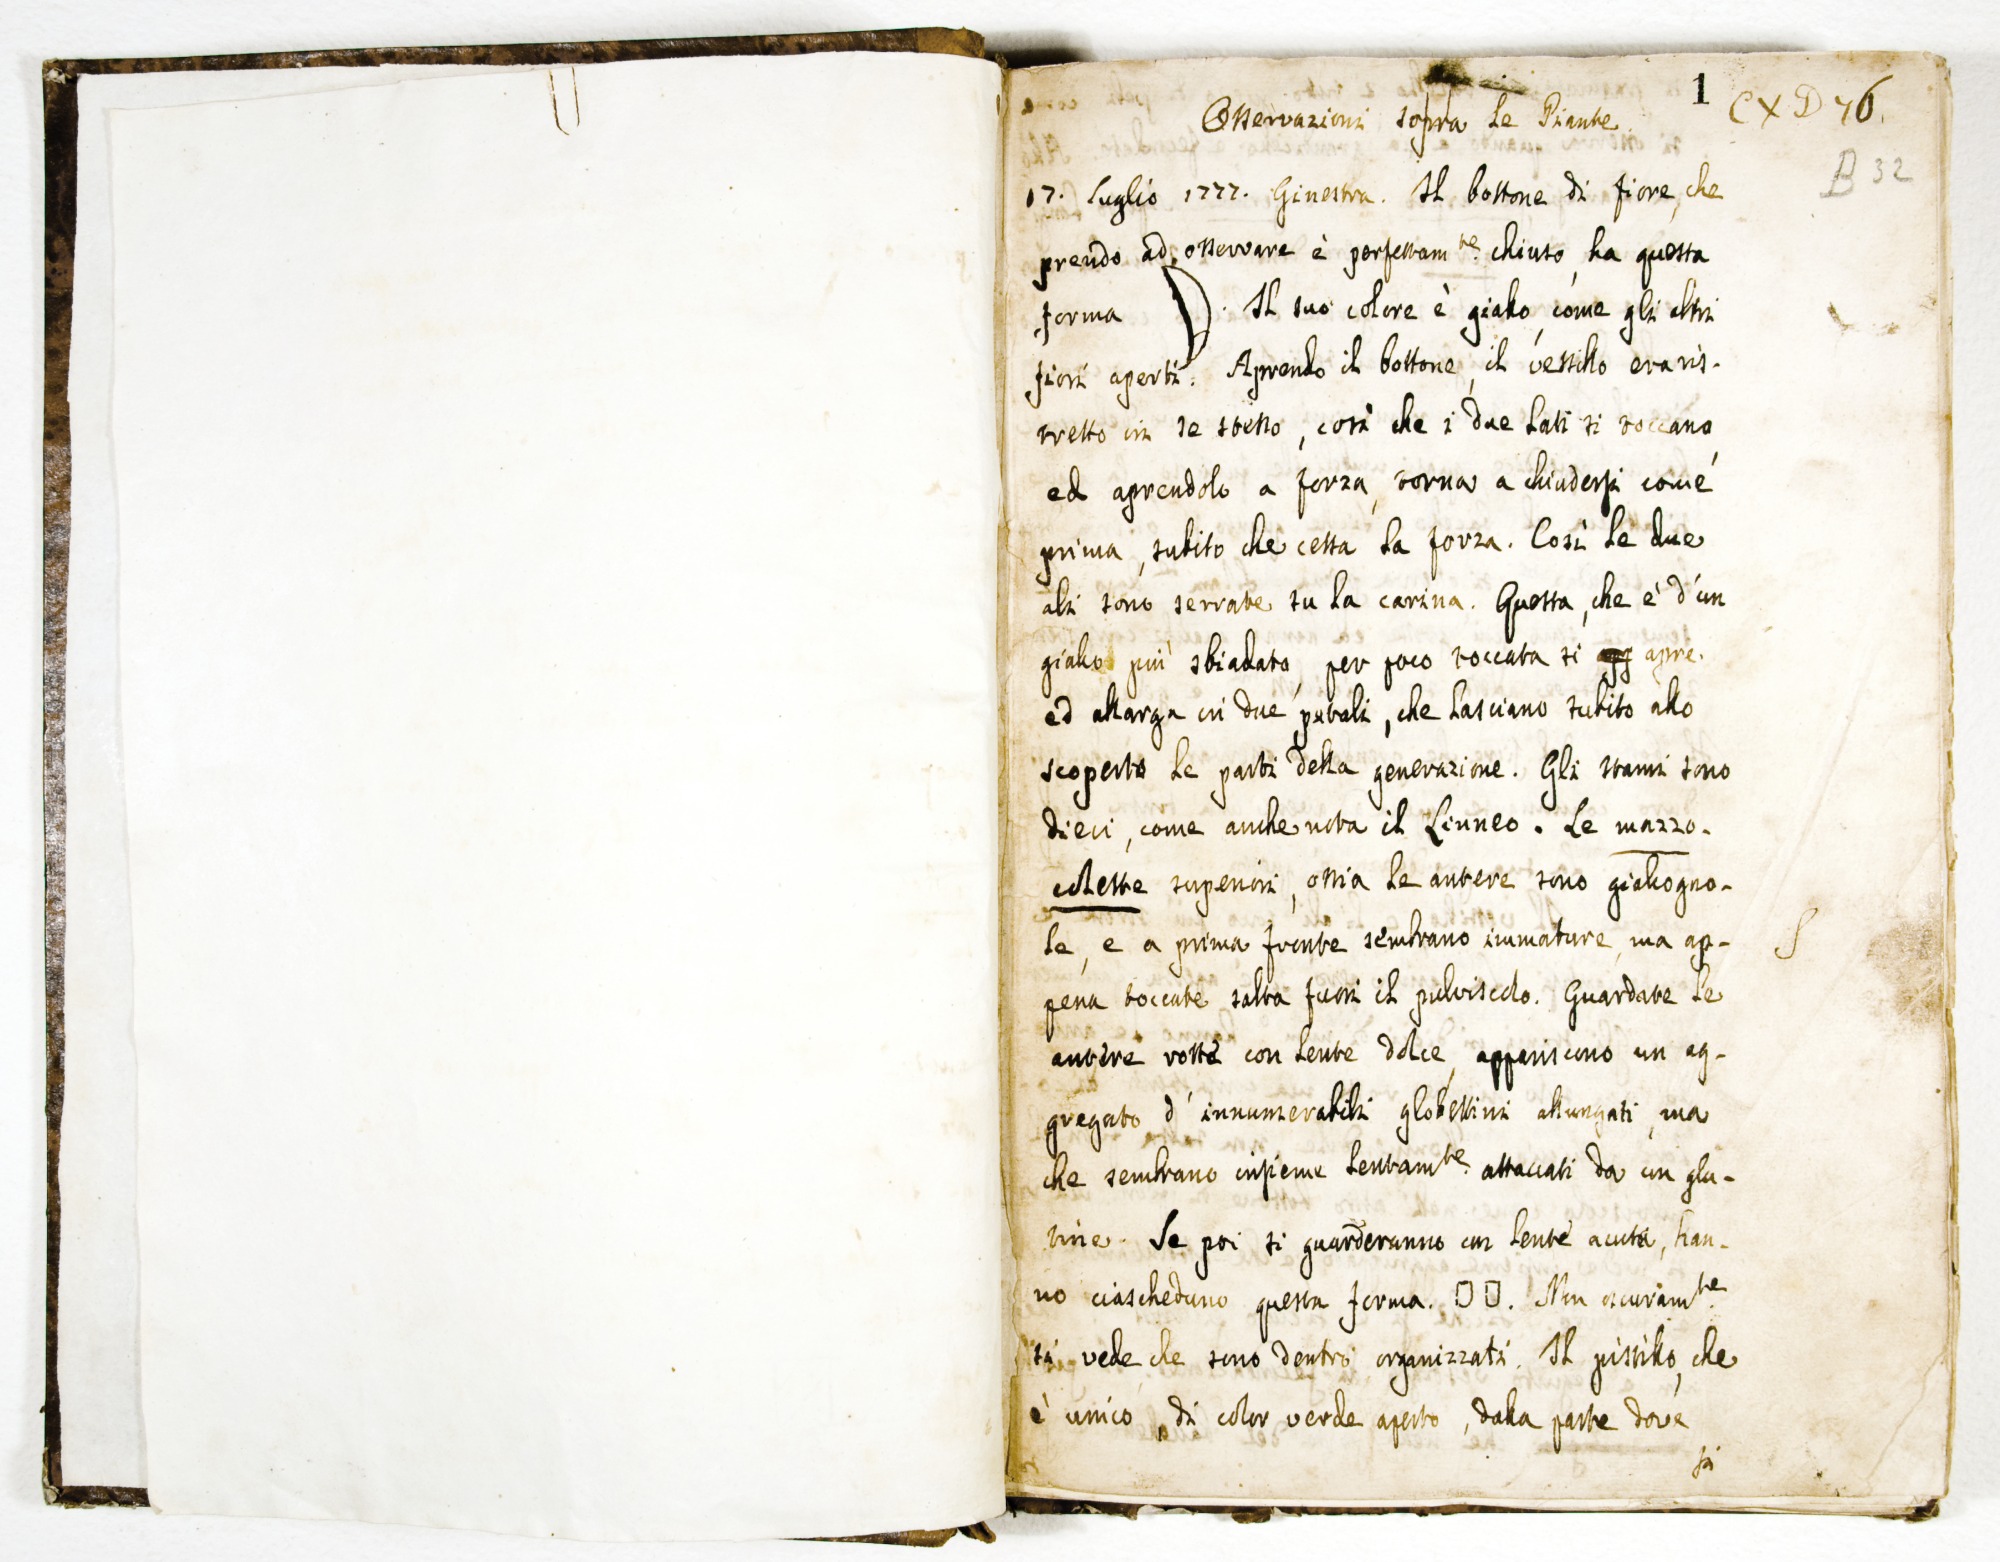 1
CXD 76.
B 32
Osservazioni sopra le Piante.
17. Luglio 1777. Ginestra. Il bottone di fiore, che
prendo ad osservare è perfettamte. chiuso, ha questa
forma . Il suo colore è giallo, come gli altri
fiori aperti. Aprendo il bottone, il vessillo era ris-
tretto in se stesso, così che i due lati si toccano
ed aprendolo a forza, torna a chiudersi come
prima, subito che cessa la forza. Così le due
ali sono serrate su la carina. Questa, che è d'un
giallo più sbiadato, per poco toccata si apre.
ed allarga in due petali, che lasciano subito allo
scoperto le parti della generazione. Gli stami sono
dieci, come anche nota il Linneo. Le mazzo-
colette superiori, ossia le antere sono giallogno-
le, e a prima fronte sembrano immature, ma ap-
pena toccate salta fuori il pulviscolo. Guardate le
antere rotte con lente dolce, appariscono un ag-
gregato d'innumerabili globettini allungati, ma
che sembrano insieme lentamte. attaccati da un glu-
tine. Se poi si guarderanno con lente acuta, han-
no ciascheduno questa forma. . Non oscuramte.
si vede che sono dentro organizzati. Il pistillo, che
è unico, di color verde aperto, dalla parte dove
si